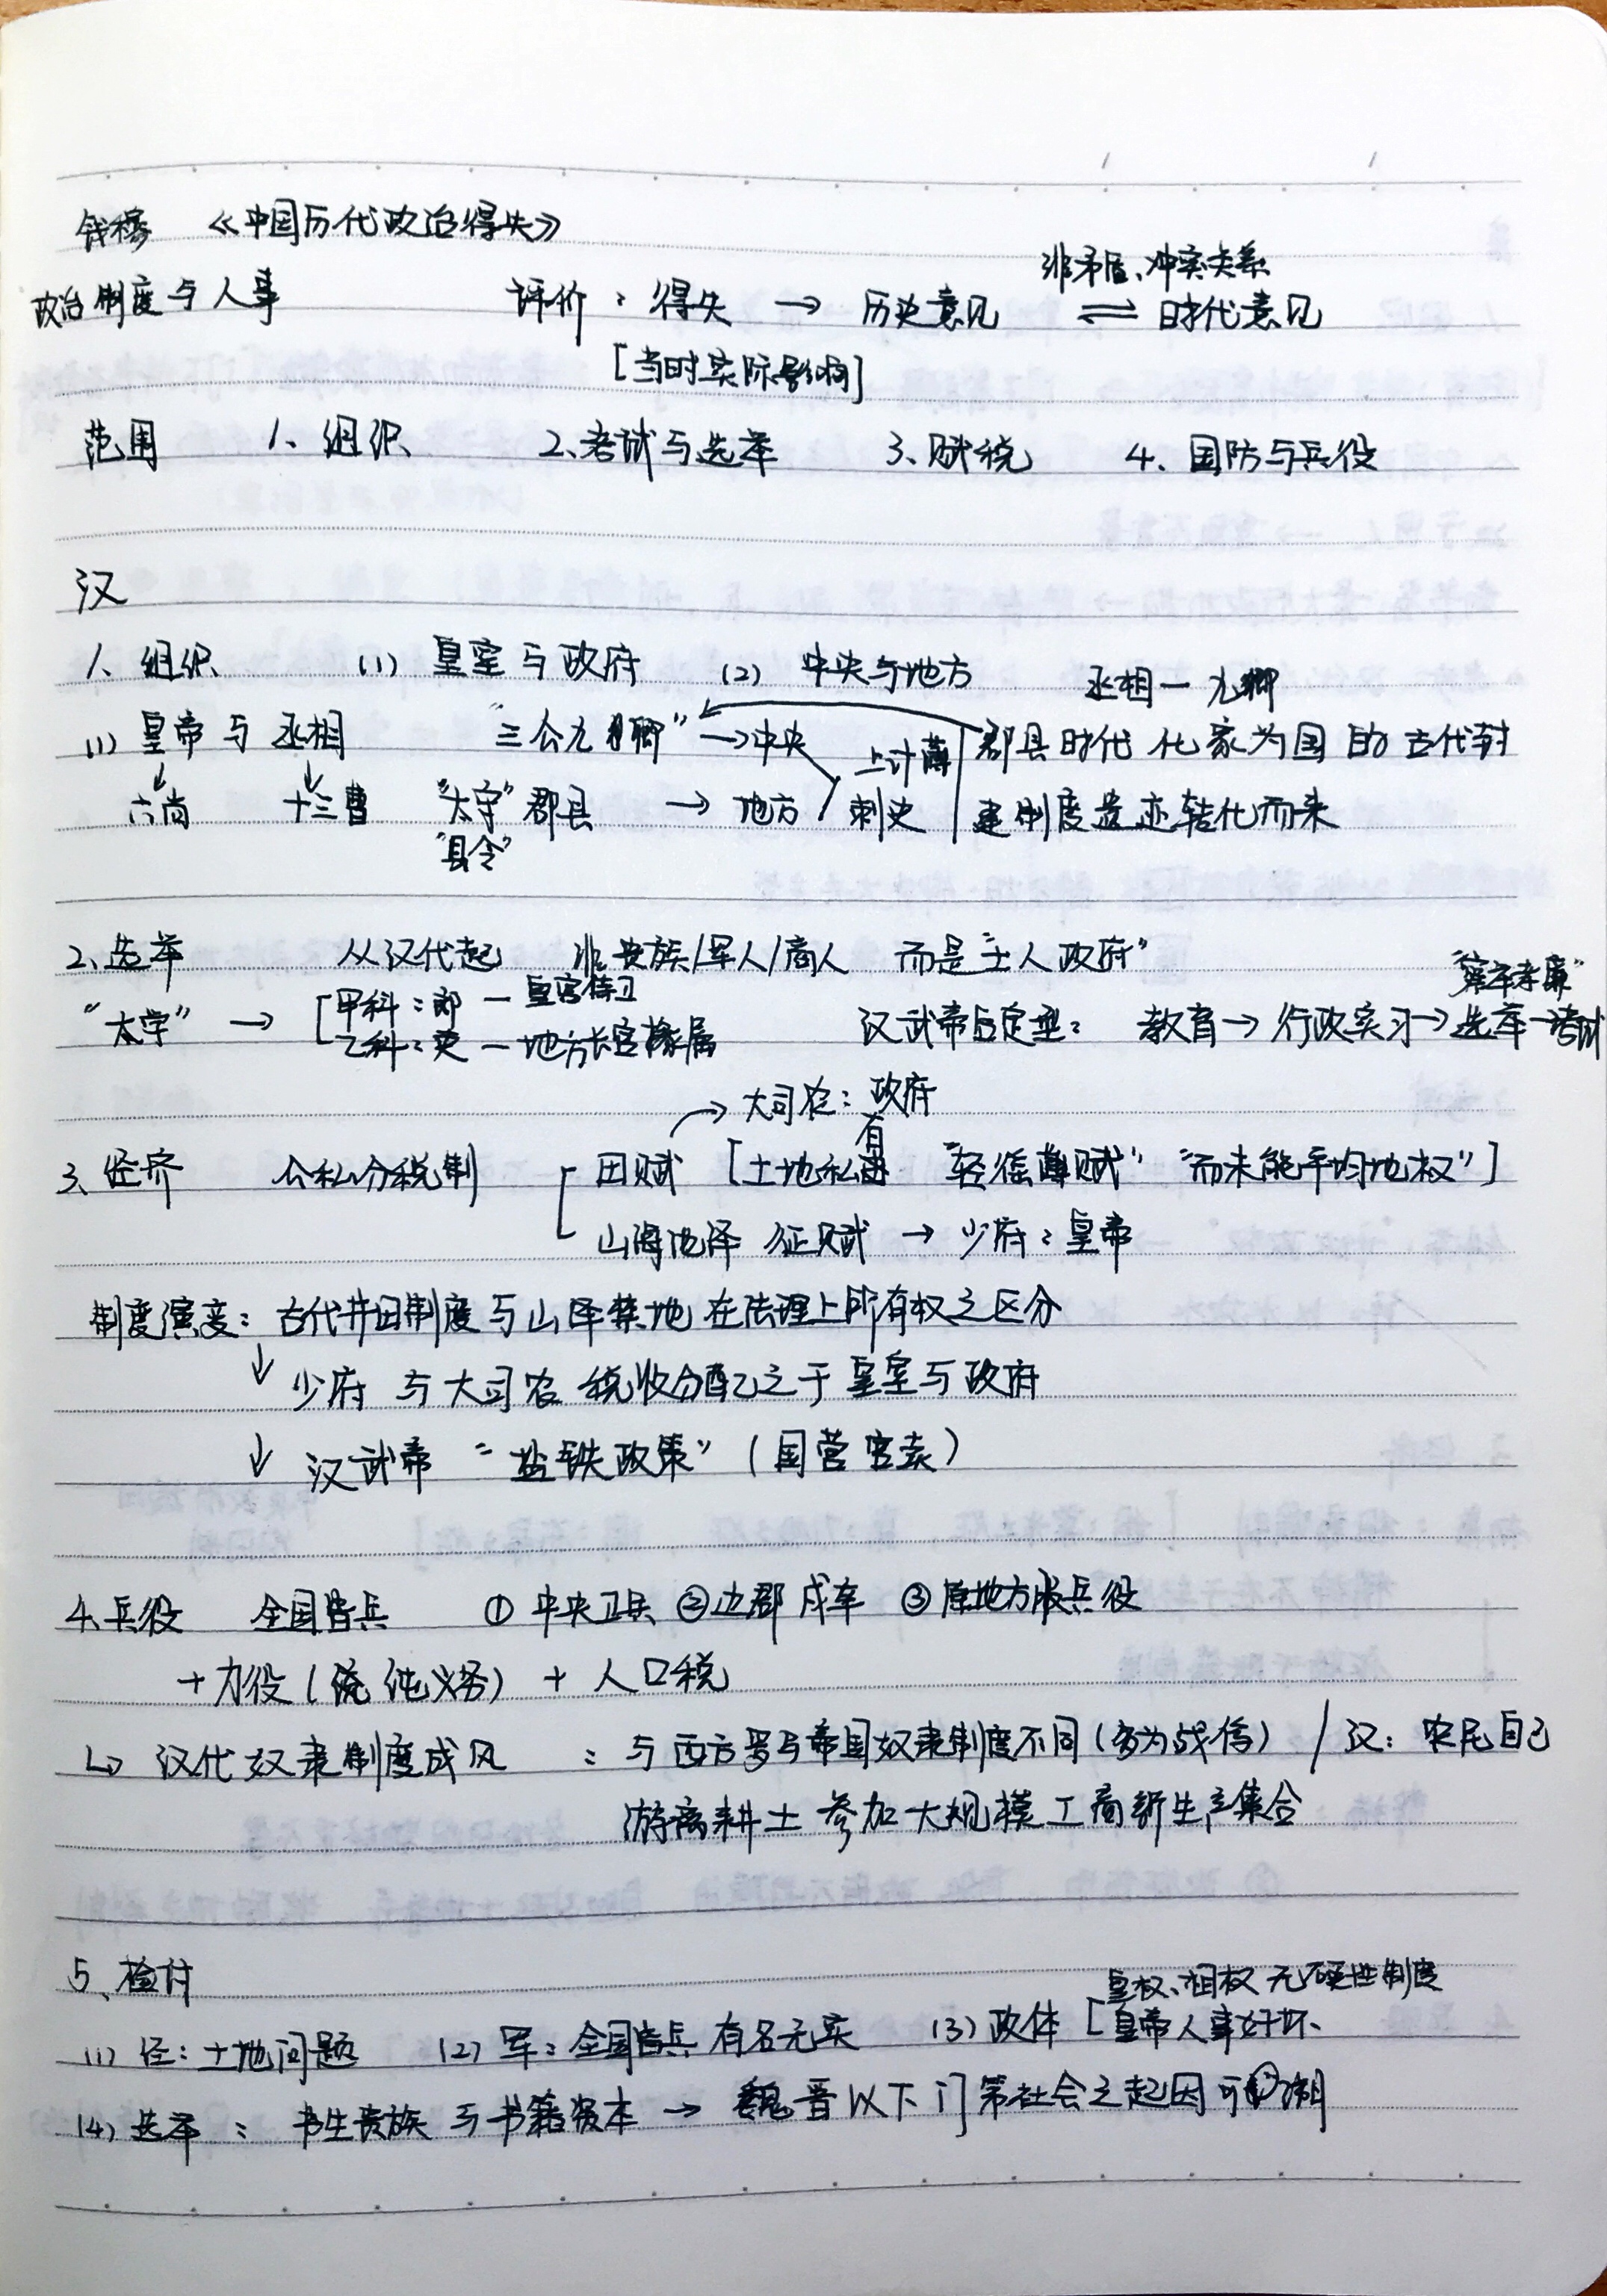 钱穆 《中国历代政治得失》
非矛盾、冲突关系
政治制度与人事 评价：得失 → 历史意见 ⇌ 时代意见
[当时实际影响]
范围 1、组织 2、考试与选举 3、赋税 4、国防与兵役
汉
1、组织 (1) 皇室与政府 (2) 中央与地方 丞相—九卿
(1) 皇帝与丞相 "三公九卿" → 中央 上计簿 郡县时代 化家为国 由古代封
六尚 十三曹 "太守" 郡县 → 地方 刺史 建制度遗迹转化而来
"县令"
2、选举 从汉代起 非贵族/军人/商人 而是"士人政府"
"察举孝廉"
"太学" → [甲科：郎 — 皇宫侍卫 汉武帝后定型：教育→行政实习→选举→考试
乙科：吏 — 地方长官掾属
→ 大司农：政府
3、经济 公私分税制 田赋 [土地私有 "轻徭薄赋" "而未能平均地权"]
山海池泽 征赋 → 少府：皇帝
制度演变：古代井田制度与山泽禁地在法理上所有权之区分
↓ 少府与大司农 税收分配之于皇室与政府
↓ 汉武帝 "盐铁政策"（国营官卖）
4、兵役 全国皆兵 ① 中央卫兵 ②边郡戍卒 ③原地方服兵役
+ 力役（纯义务） + 人口税
↳ 汉代奴隶制度成风 ：与西方罗马帝国奴隶制度不同（多为战俘） / 汉：农民自己
游离耕土 参加大规模工商新生产集合
5、检讨
皇权、相权无硬性制度
(1) 经：土地问题 (2) 军：全国皆兵 有名无实 (3) 政体 [皇帝人事好坏、
(4) 选举：书生贵族与书籍资本 → 魏晋以下门第社会之起因可溯